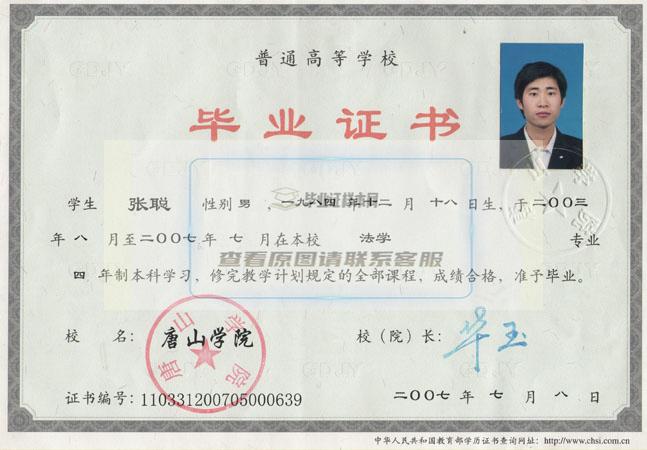 普通高等学校
毕业证书
学生 张聪 性别 男 ，一九八四 年 十二 月 十八 日生，于 二〇〇三
毕业证样本网
年 八 月至 二〇〇七 年 七 月在本校 法学 专业
查看原图请联系客服
四 年制本科学习，修完教学计划规定的全部课程，成绩合格，准予毕业。
校 名： 唐山学院 校（院）长： 华玉
唐山学院
证书编号：110331200705000639 二〇〇七 年 七 月 八 日
中华人民共和国教育部学历证书查询网址：http://www.chsi.com.cn